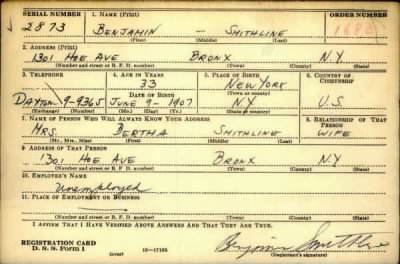 SERIAL NUMBER 1. NAME (Print) ORDER NUMBER
2873 BENJAMIN - SMITHLINE
(First) (Middle) (Last)
2. ADDRESS (Print)
1301 HOE AVE BRONX N.Y.
(Number and street or R. F. D. number) (Town) (County) (State)
3. TELEPHONE 4. AGE IN YEARS 5. PLACE OF BIRTH 6. COUNTRY OF CITIZENSHIP
33 NEW YORK
DATE OF BIRTH (Town or county)
DAYTON 9-9365 JUNE 9-1907 NY U.S.
(Exchange) (Number) (Mo.) (Day) (Yr.) (State or country)
7. NAME OF PERSON WHO WILL ALWAYS KNOW YOUR ADDRESS 8. RELATIONSHIP OF THAT PERSON
MRS. BERTHA SMITHLINE WIFE
(Mr., Mrs., Miss) (First) (Middle) (Last)
9. ADDRESS OF THAT PERSON
1301 HOE AVE BRONX N.Y
(Number and street or R. F. D. number) (Town) (County) (State)
10. EMPLOYER'S NAME
Unemployed
11. PLACE OF EMPLOYMENT OR BUSINESS
(Number and street or R. F. D. number) (Town) (County) (State)
I AFFIRM THAT I HAVE VERIFIED ABOVE ANSWERS AND THAT THEY ARE TRUE.
REGISTRATION CARD
D. S. S. Form 1 (over) 16-17105 Benjamin Smithline
(Registrant's signature)